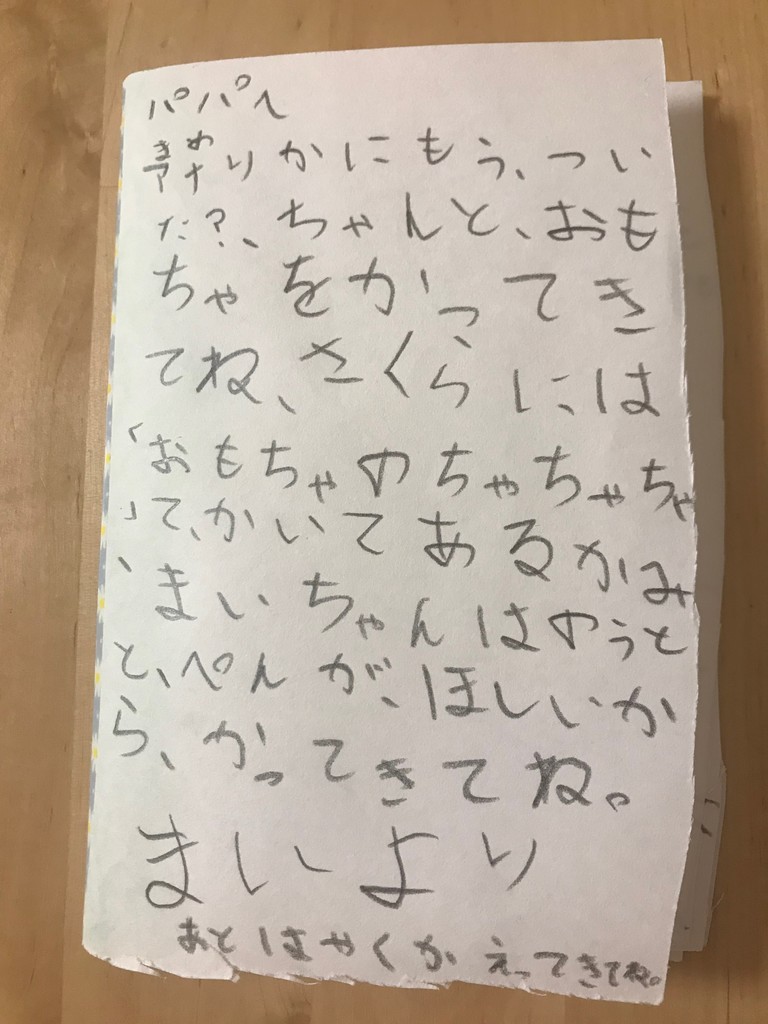 パパへ
りかにもう、つい
た?、ちゃんと、おも
ちゃをかって、てき
てね、さくらには
「おもちゃのちゃちゃちゃ
」て、かいてあるかみ
、まいちゃんはのうと
と、ぺんが、ほしいか
ら、かってきてね。
まいより
あとはやくかえってきてね。